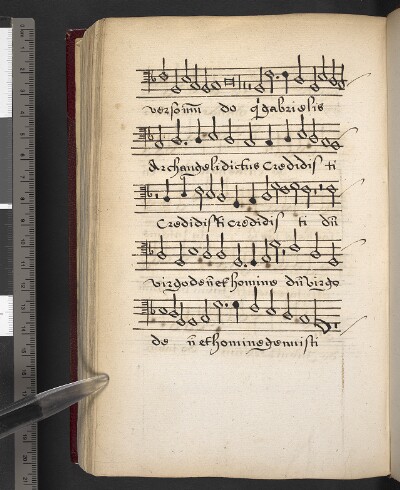 do q̄ gabrielis
Archangeli dictus Credidis ti
Credidisti credidis ti dū
virgo de n̄ et homine dū virgo
de n̄ et homine genuisti